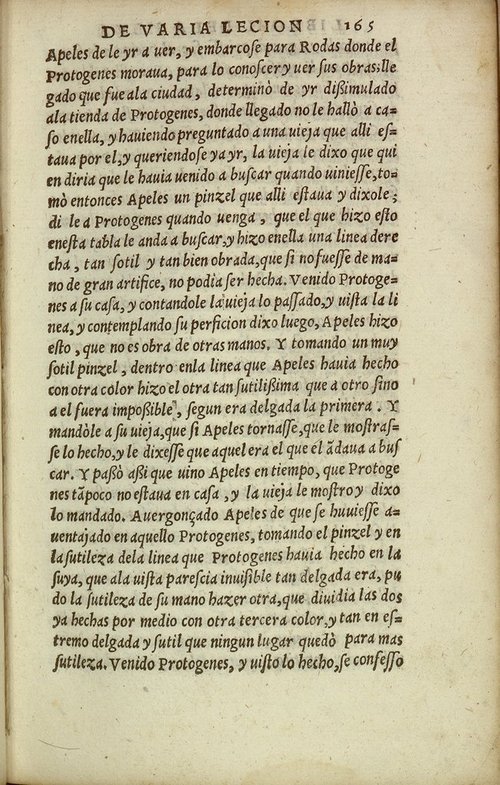 DE VARIA LECION 165
Apeles de le yr a uer, y embarcose para Rodas donde el
Protogenes moraua, para lo conoscer y uer sus obras; lle
gado que fue ala ciudad, determinò de yr dißimulado
ala tienda de Protogenes, donde llegado no le hallò a ca-
so enella, y hauiendo preguntado a una uieja que alli es-
taua por el, y queriendose ya yr, la uieja le dixo que qui
en diria que le hauia uenido a buscar quando uiniesse, to-
mò entonces Apeles un pinzel que alli estaua y dixole;
di le a Protogenes quando uenga, que el que hizo esto
enesta tabla le anda a buscar, y hizo enella una linea dere
cha, tan sotil y tan bien obrada, que si no fuesse de ma-
no de gran artifice, no podia ser hecha. Venido Protoge-
nes a su casa, y contandole la uieja lo passado, y uista la li
nea, y contemplando su perficion dixo luego, Apeles hizo
esto, que no es obra de otras manos. Y tomando un muy
sotil pinzel, dentro enla linea que Apeles hauia hecho
con otra color hizo el otra tan sutilißima que a otro sino
a el fuera impoßible, segun era delgada la primera. Y
mandòle a su uieja, que si Apeles tornasse, que le mostras-
se lo hecho, y le dixesse que aquel era el que el ãdaua a bus
car. Y paßò aßi que uino Apeles en tiempo, que Protoge
nes tãpoco no estaua en casa, y la uieja le mostro y dixo
lo mandado. Auergonçado Apeles de que se huuiesse a-
uentajado en aquello Protogenes, tomando el pinzel y en
la sutileza dela linea que Protogenes hauia hecho en la
suya, que ala uista parescia inuisible tan delgada era, pu
do la sutileza de su mano hazer otra, que diuidia las dos
ya hechas por medio con otra tercera color, y tan en es-
tremo delgada y sutil que ningun lugar quedò para mas
sutileza. Venido Protogenes, y uisto lo hecho, se confesso